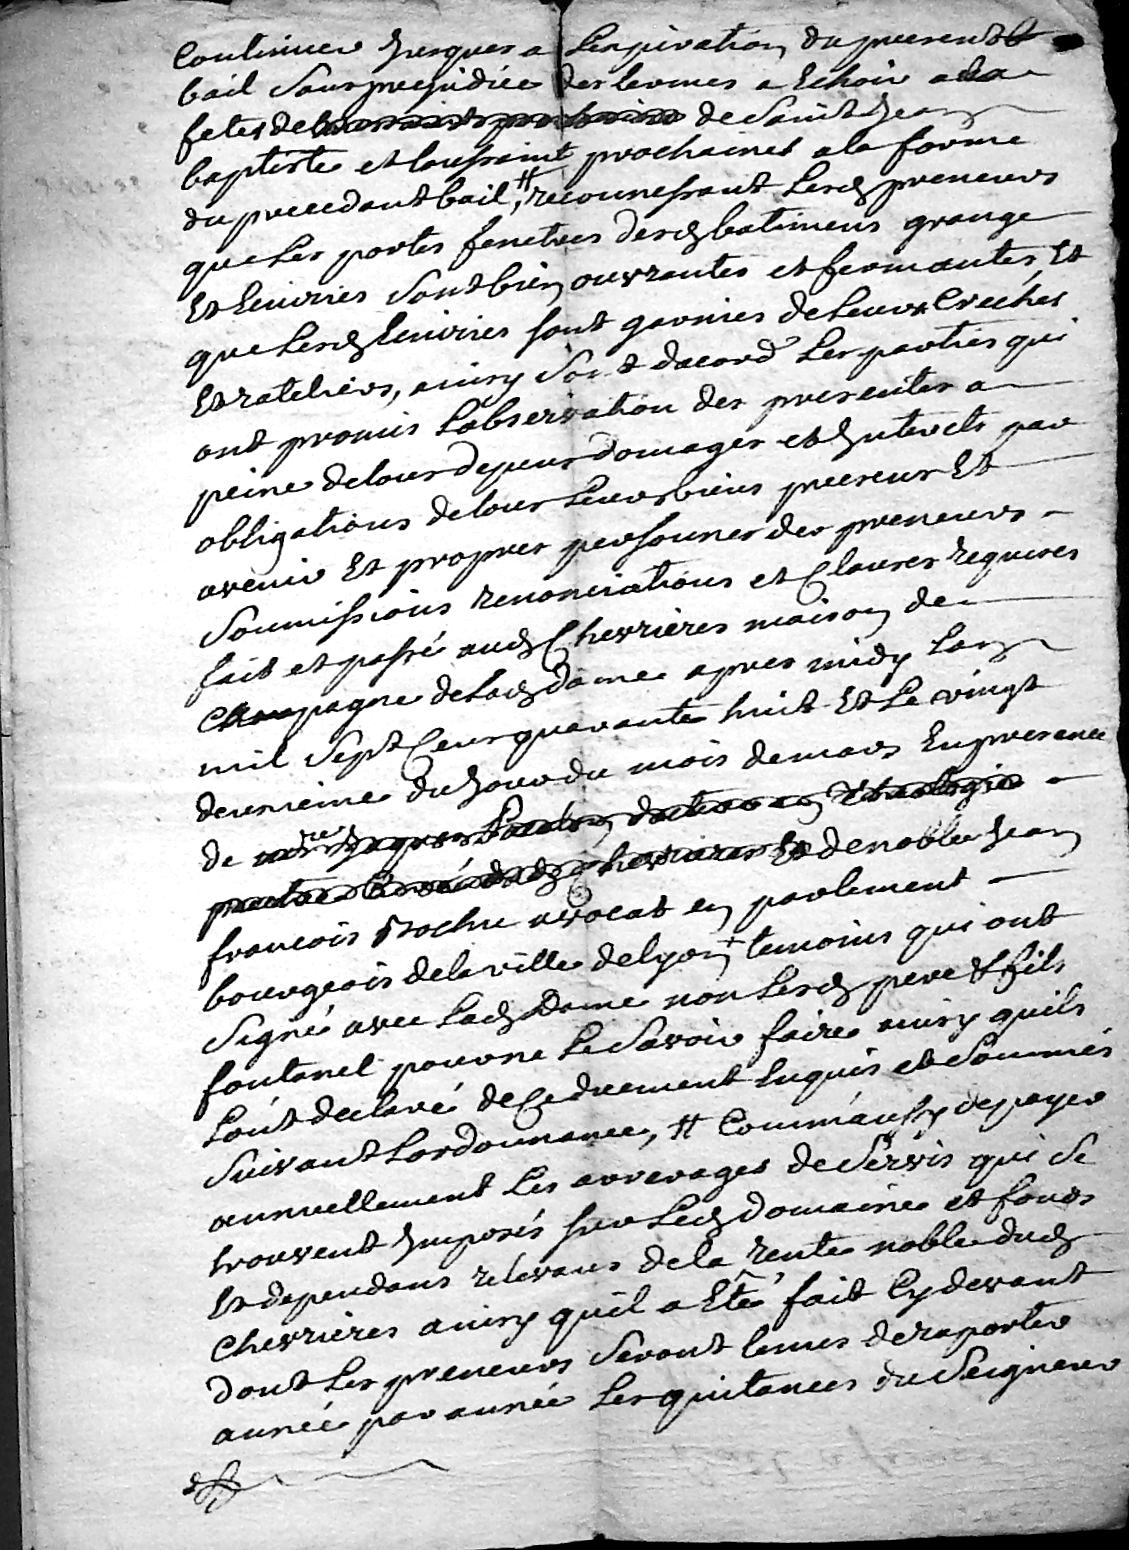 continuer Jusques a Lexpiration du present
bail sans prejudice des termes a Echoir a
fetes de de saint Jean
baptiste et toussaint prochaines a la forme
du precedant bail, # reconnessant Lesd preneurs
que Les portes fenetres desd batimens grange
Et Ecuries sont bien ouvrantes et fermantes, Et
que Lesd Ecuries sont garnies de Leurs Creches
Et rateliers, ainsy sont dacord Les parties qui
ont promis Lobservation des presentes a
peine de tous depens domages et Interets par
obligations de tous Leurs biens presens Et
avenir Et propres personnes des preneurs
soumissions renonciations et Clauses requises
fait et passé aud Chevrieres maison de
Campagne de lad dame apres midy Lan
mil sept Cens quarante huit Et Le vingt
deuxieme du Jour du mois de mars En presence
de mre Jaques docteur en theologie
pretre Curé dud chevrieres Et de noble Jean
francois avocat en parlement
bourgeois de la ville de lyon + temoins qui ont
signé avec Lad Dame non Lesd pere & fils
fontanel pour ne Le savoir faire ainsy quils
Lont declaré de Ce duement Enquis et sommés
suivant Lordonnance, # Comm'aussy de payer
annuellement Les arrerages de servis qui se
trouvent Imposés sur Led domaine et fonds
Et dependans relevans de la rente noble dud
Chevrieres ainsy quil a Eté fait Cy devant
dont Les preneurs seront tenus de raporter
année par année Les quitances du seigneur